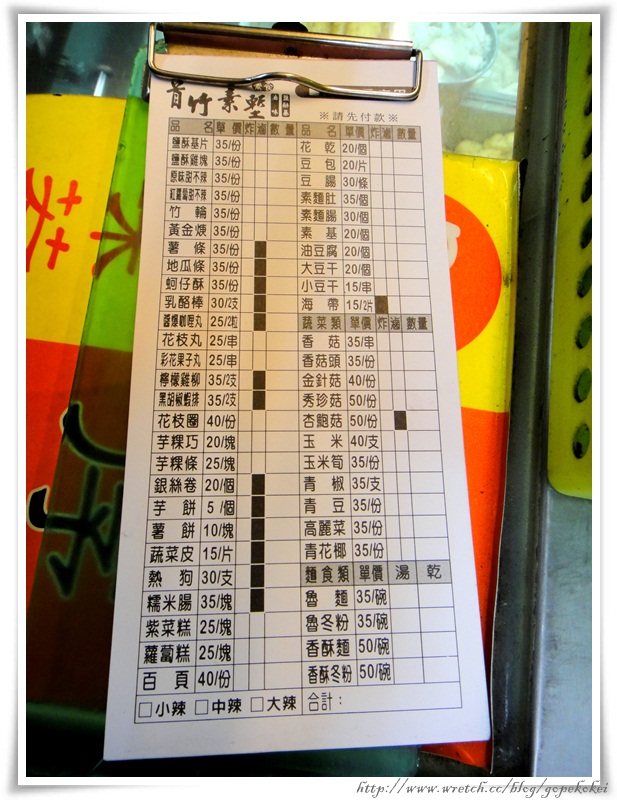 青竹素墅
滷味
※請先付款※
品 名 單價 炸 滷 數量
鹽酥基片 35/份
鹽酥雞塊 35/份
原味甜不辣 35/份
紅蘿蔔甜不辣 35/份
竹輪 35/份
黃金 35/份
薯條 35/份
地瓜條 35/份
蚵仔酥 35/份
乳酪棒 30/2支
醬爆咖哩丸 25/2粒
花枝丸 25/串
彩花果子丸 25/串
檸檬雞柳 35/2支
黑胡椒蝦排 35/2支
花枝圈 40/份
芋粿巧 20/塊
芋粿條 25/塊
銀絲卷 20/個
芋餅 5/個
薯餅 10/塊
蔬菜皮 15/片
熱狗 30/支
糯米腸 35/塊
紫菜糕 25/塊
蘿蔔糕 25/塊
百頁 40/份
□小辣 □中辣 □大辣
品 名 單價 炸 滷 數量
花乾 20/個
豆包 20/片
豆腸 30/條
素麵肚 35/個
素麵腸 30/個
素基 20/個
油豆腐 20/個
大豆干 20/個
小豆干 15/串
海帶 15/2片
蔬菜類 單價 炸 滷 數量
香菇 35/串
香菇頭 35/份
金針菇 40/份
秀珍菇 50/份
杏鮑菇 50/份
玉米 40/支
玉米筍 35/份
青椒 35/支
青豆 35/份
高麗菜 35/份
青花椰 35/份
麵食類 單價 湯 乾
魯麵 35/碗
魯冬粉 35/碗
香酥麵 50/碗
香酥冬粉 50/碗
合計：
http://www.wretch.cc/blog/gopekokei